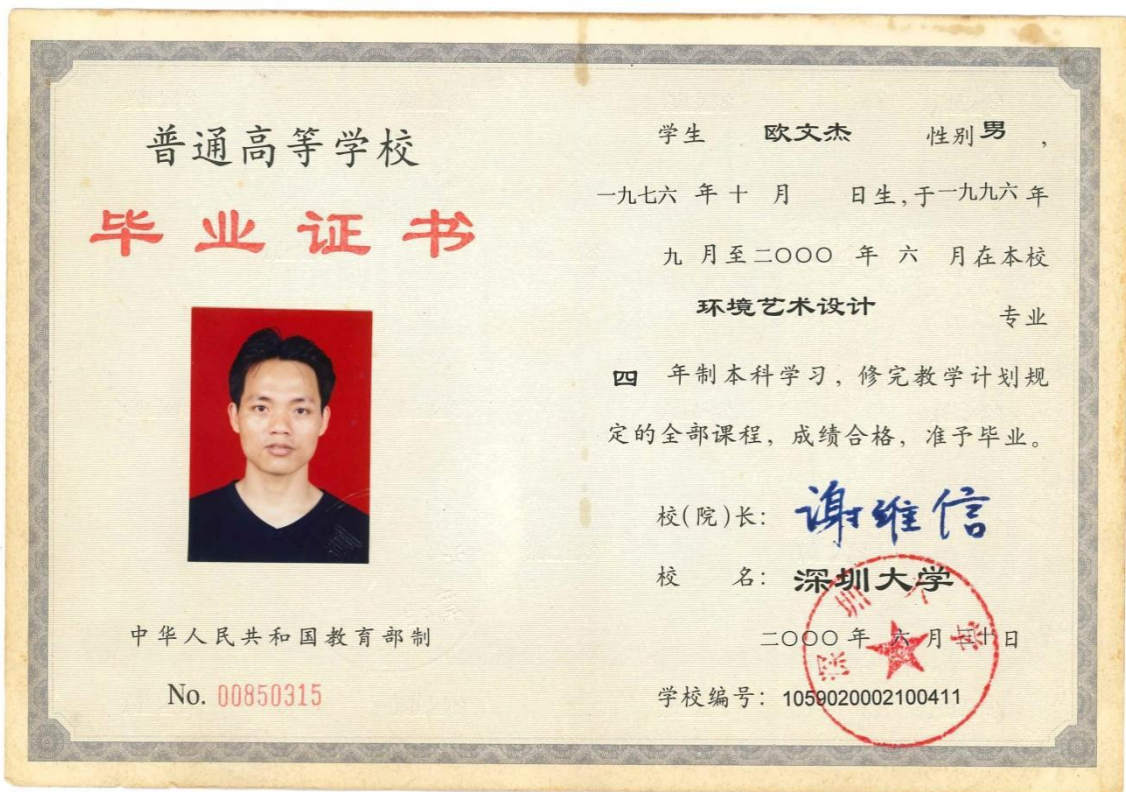 普通高等学校
毕业证书
中华人民共和国教育部制
No. 00850315
学生 欧文杰 性别 男 ,
一九七六 年 十 月 日生,于 一九九六 年
九 月至 二〇〇〇 年 六 月在本校
环境艺术设计 专业
四 年制本科学习,修完教学计划规
定的全部课程,成绩合格,准予毕业。
校(院)长: 谢维信
校 名: 深圳大学
二〇〇〇 年 六 月 三十日
学校编号: 1059020002100411
深圳大学